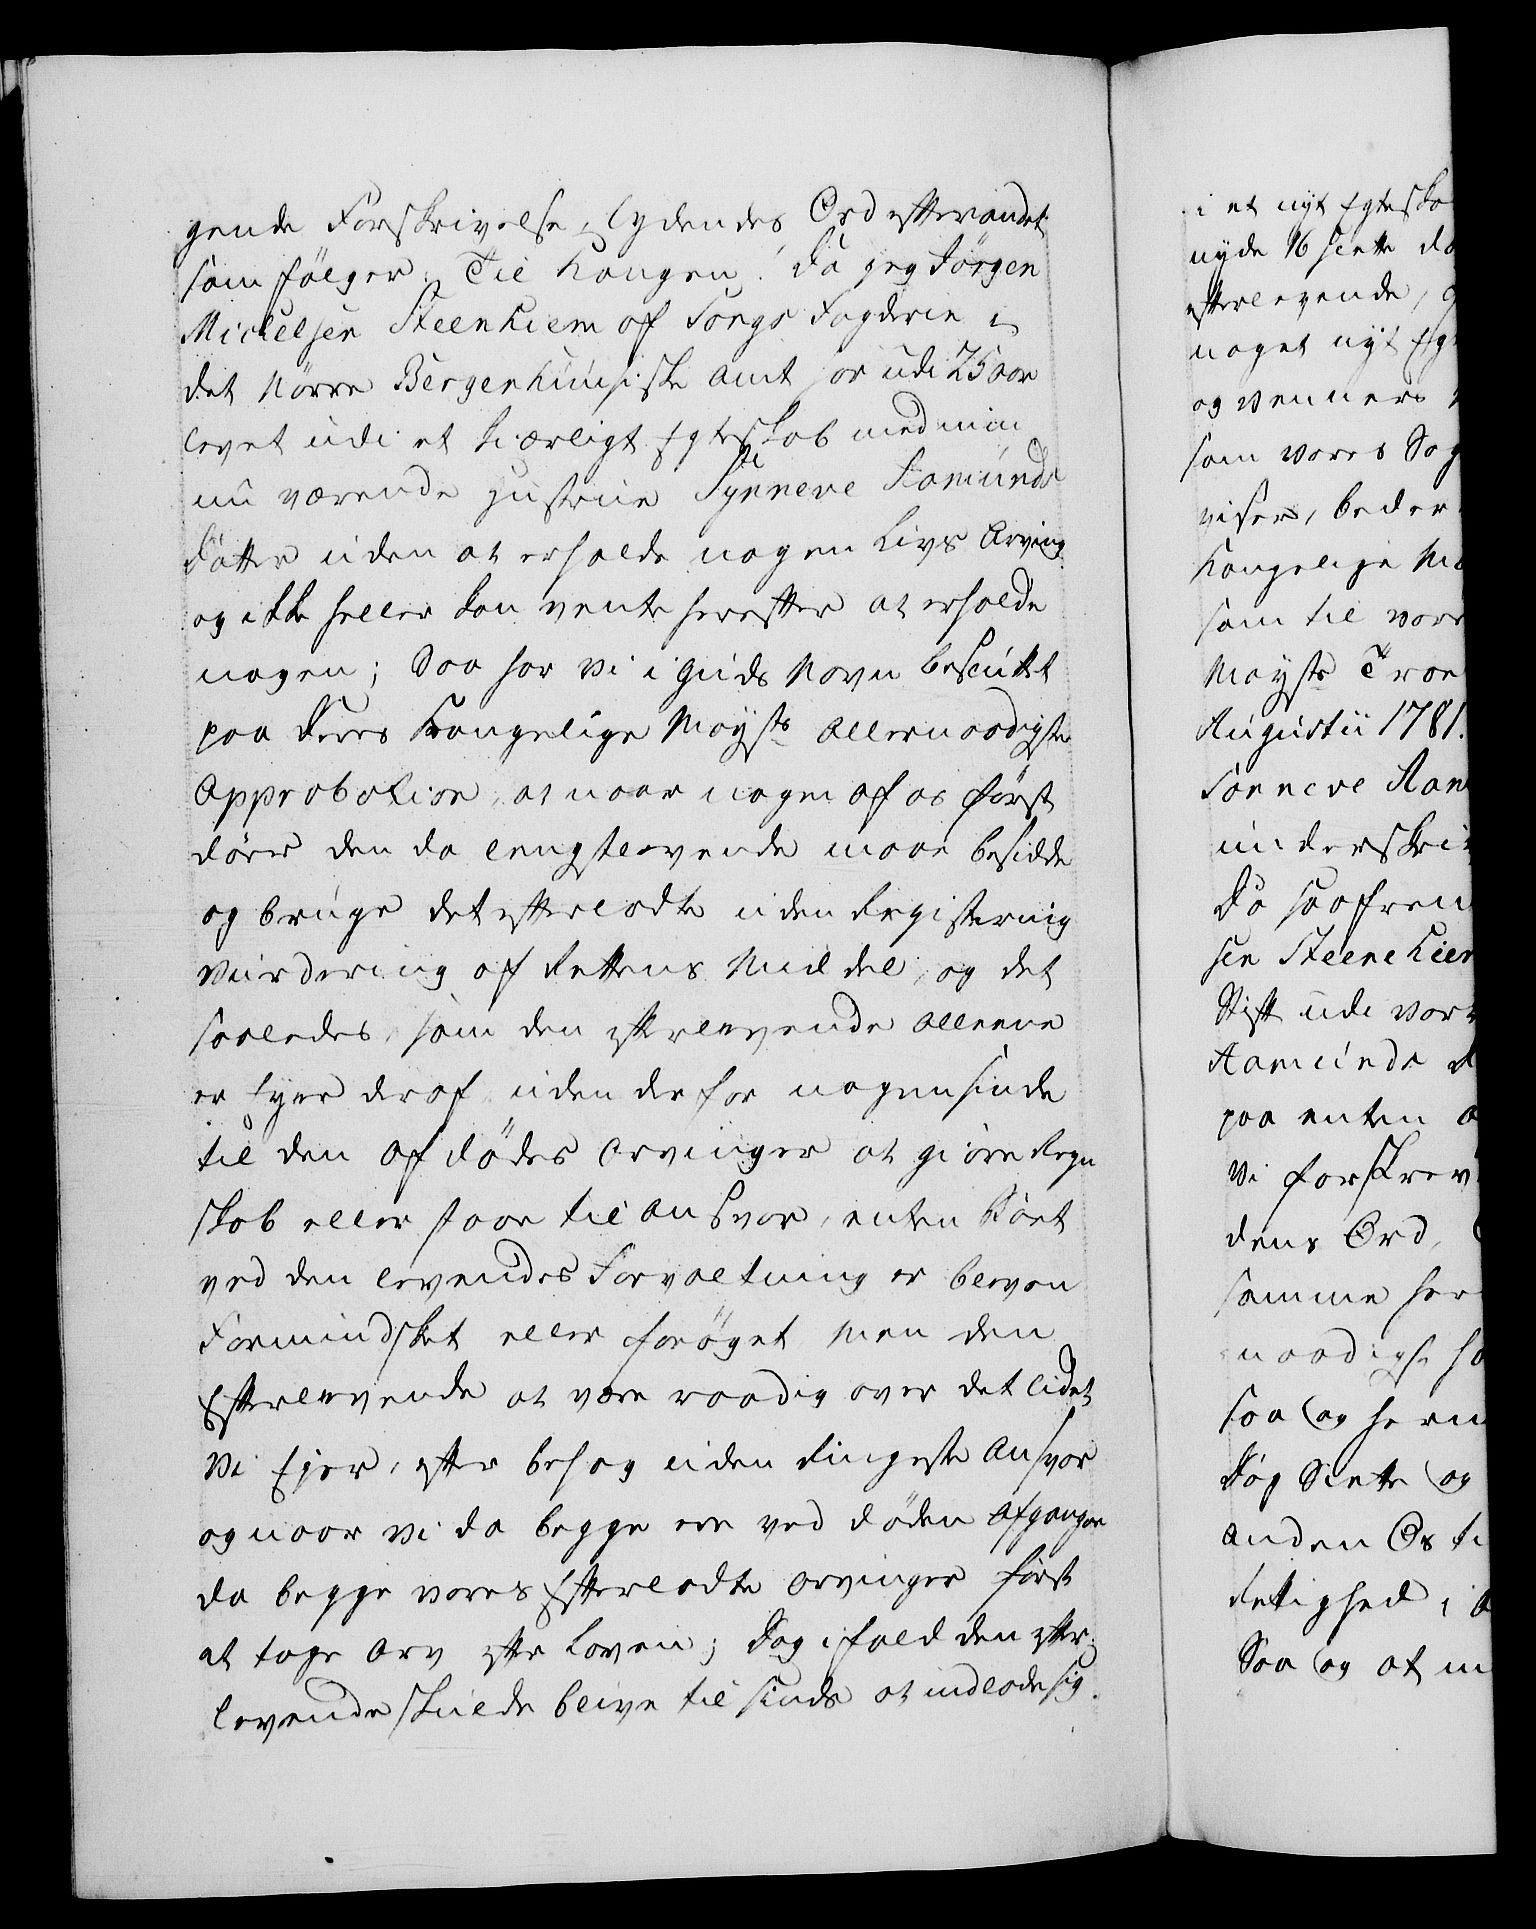 gende Forskrivelse, lydendes Ord efter andet
som følger: Til Kongen! Da jeg Jørgen
Michelsen Steenhiem af Songs Fogderie i
det Nørre Bergenhuusiske Amt har udi 25 aar
levet udi et kierligt Egteskab med min
nu værende Hustrue Synneve Aamunds
Datter uden at erholde nogen Livs Arving
og ikke heller kan vente herefter at erholde
nogen; Saa har vi i Guds Navn besluttet
paa Deres Kongelige Mayts Allernaadigste
Approbation, at naar nogen af os først
døer den da lengstlevende maae besidde
og bruge det efterladte uden Registering
Vurdering af Rettens Middel, og det
saaledes, som den efterlevende alleene
er Eyer deraf, uden derfor nogensinde
til den Afdødes Arvinger at giøre Regn
skab eller staae til Ansvar, enten Boet
ved den levendes Forvaltning er bleven
Formindsket eller forøget Men den
Efterlevende at være raadig over det lidet
Vi Ejer, efter behag uden Ringeste Ansvar
og naar vi da begge ere ved døden Afgangne
da begge vores Efterladte Arvinger først
at tage Arv efter Loven; Dog ifald den efter¬
levende skulde blive til sinds at indlade sig
i et nyt Egteska
nyde 16 
efterlevende,
noget nyt Eg
og Venners
som vores Sog
viser, beder
Kongelige Ma
som til vor
Mayts Troe
Augustii 1781.
Sønneve Aam
underskri
Da saafrem
sen Steenehiem
Stift udi vor
Aamunds D
paa enten
Vi forskrev
dens Ord,
samme her
naadigst ha
saa og herm
Dog 
anden Os ti
rettighed i
Saa og at